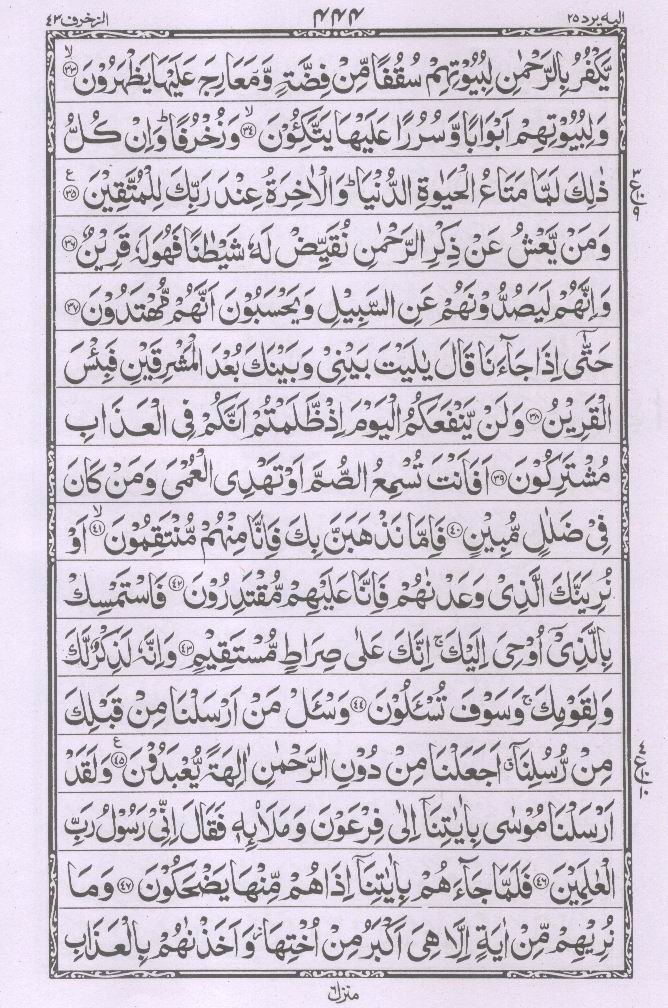 الیه یرد ۲۵ ۴۴۴ الزخرف ۴۳
يَّكْفُرُ بِالرَّحْمٰنِ لِبُيُوْتِهِمْ سُقُفًا مِّنْ فِضَّةٍ وَّمَعَارِجَ عَلَيْهَا يَظْهَرُوْنَ ۙ﴿۳۳﴾
وَلِبُيُوْتِهِمْ اَبْوَابًا وَّسُرُرًا عَلَيْهَا يَتَّكِـُٔوْنَ ۙ﴿۳۴﴾ وَزُخْرُفًا ؕ وَاِنْ كُلُّ
ذٰلِكَ لَمَّا مَتَاعُ الْحَيٰوةِ الدُّنْيَا ؕ وَالْاٰخِرَةُ عِنْدَ رَبِّكَ لِلْمُتَّقِيْنَ ﴿۳۵﴾ ع
وَمَنْ يَّعْشُ عَنْ ذِكْرِ الرَّحْمٰنِ نُقَيِّضْ لَهٗ شَيْطٰنًا فَهُوَ لَهٗ قَرِيْنٌ ﴿۳۶﴾
وَاِنَّهُمْ لَيَصُدُّوْنَهُمْ عَنِ السَّبِيْلِ وَيَحْسَبُوْنَ اَنَّهُمْ مُّهْتَدُوْنَ ﴿۳۷﴾
حَتّٰۤى اِذَا جَآءَنَا قَالَ يٰلَيْتَ بَيْنِيْ وَبَيْنَكَ بُعْدَ الْمَشْرِقَيْنِ فَبِئْسَ
الْقَرِيْنُ ﴿۳۸﴾ وَلَنْ يَّنْفَعَكُمُ الْيَوْمَ اِذْ ظَّلَمْتُمْ اَنَّكُمْ فِي الْعَذَابِ
مُشْتَرِكُوْنَ ﴿۳۹﴾ اَفَاَنْتَ تُسْمِعُ الصُّمَّ اَوْ تَهْدِي الْعُمْيَ وَمَنْ كَانَ
فِيْ ضَلٰلٍ مُّبِيْنٍ ﴿۴۰﴾ فَاِمَّا نَذْهَبَنَّ بِكَ فَاِنَّا مِنْهُمْ مُّنْتَقِمُوْنَ ۙ﴿۴۱﴾ اَوْ
نُرِيَنَّكَ الَّذِيْ وَعَدْنٰهُمْ فَاِنَّا عَلَيْهِمْ مُّقْتَدِرُوْنَ ﴿۴۲﴾ فَاسْتَمْسِكْ
بِالَّذِيْۤ اُوْحِيَ اِلَيْكَ ۚ اِنَّكَ عَلٰى صِرَاطٍ مُّسْتَقِيْمٍ ﴿۴۳﴾ وَاِنَّهٗ لَذِكْرٌ لَّكَ
وَلِقَوْمِكَ ۚ وَسَوْفَ تُسْـَٔلُوْنَ ﴿۴۴﴾ وَسْـَٔلْ مَنْ اَرْسَلْنَا مِنْ قَبْلِكَ
مِنْ رُّسُلِنَاۤ ۖ اَجَعَلْنَا مِنْ دُوْنِ الرَّحْمٰنِ اٰلِهَةً يُّعْبَدُوْنَ ﴿۴۵﴾ ع وَلَقَدْ
اَرْسَلْنَا مُوْسٰى بِاٰيٰتِنَاۤ اِلٰى فِرْعَوْنَ وَمَلَا۟ئِهٖ فَقَالَ اِنِّيْ رَسُوْلُ رَبِّ
الْعٰلَمِيْنَ ﴿۴۶﴾ فَلَمَّا جَآءَهُمْ بِاٰيٰتِنَاۤ اِذَا هُمْ مِّنْهَا يَضْحَكُوْنَ ﴿۴۷﴾ وَمَا
نُرِيْهِمْ مِّنْ اٰيَةٍ اِلَّا هِيَ اَكْبَرُ مِنْ اُخْتِهَا ؗ وَاَخَذْنٰهُمْ بِالْعَذَابِ
منزل ۶